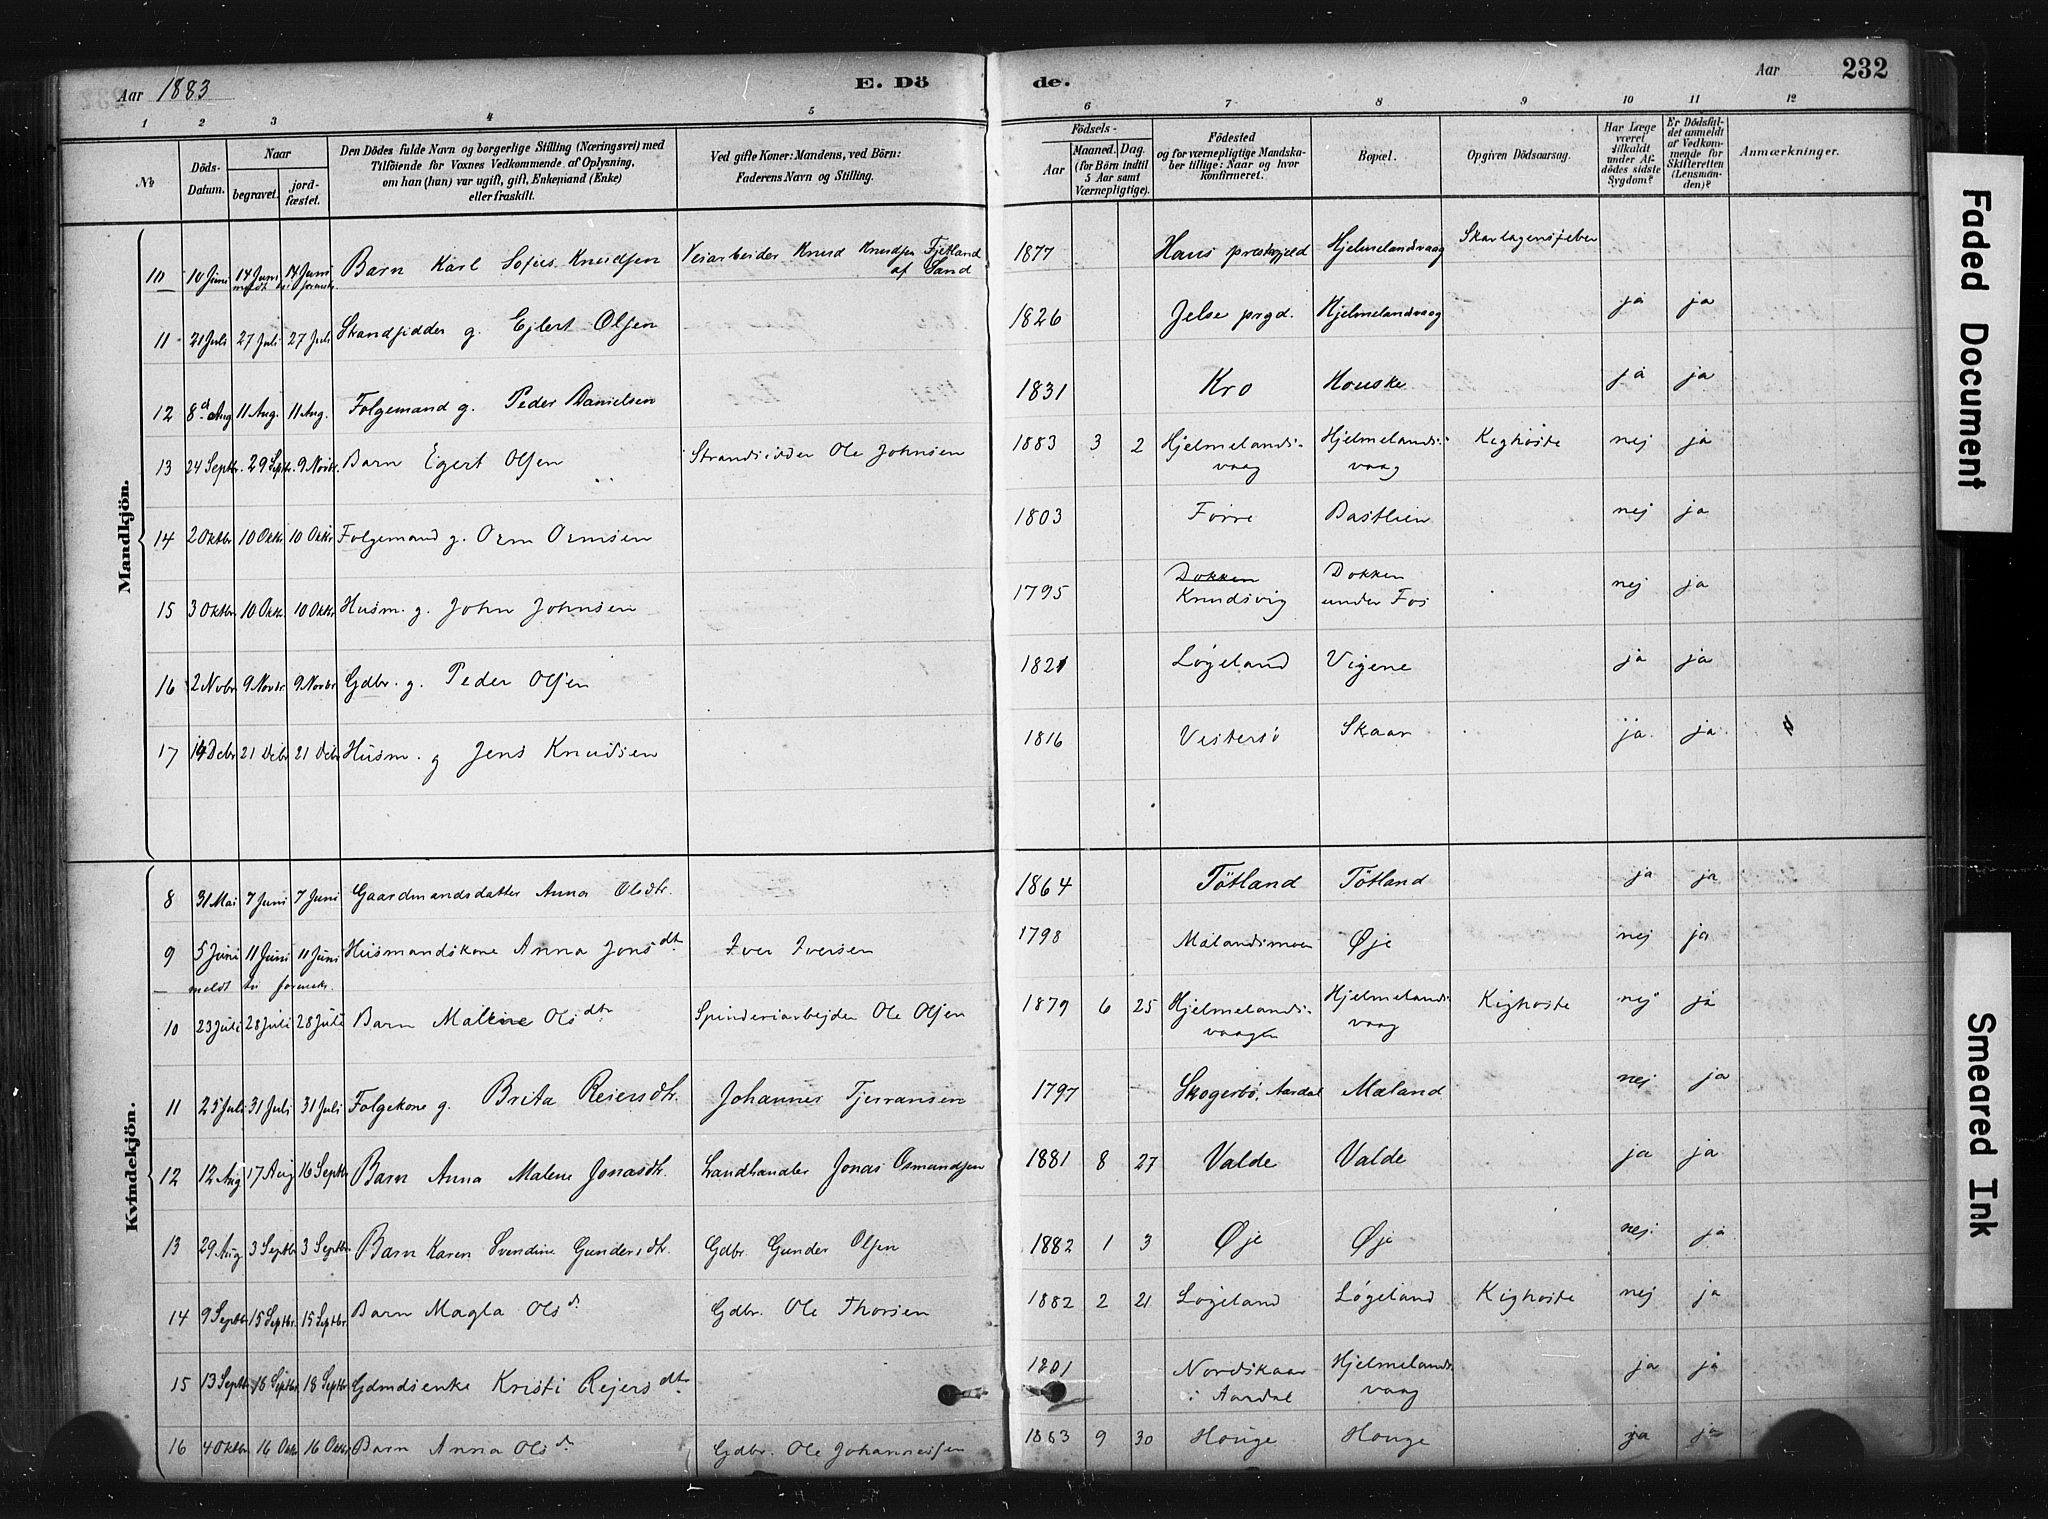 Aar 1883 E. Dö de. Aar 232
1 2 3 4 5 6 7 8 9 10 11 12
№ Döds-Datum. Naar begravet. jord-fæstet. Den Dödes fulde Navn og borgerlige Stilling (Næringsvei) med Tilföiende for Voxnes Vedkommende af Oplysning, om han (hun) var ugift, gift, Enkemand (Enke) eller fraskilt. Ved gifte Koner: Mandens, ved Börn: Faderens Navn og Stilling. Födsels- Aar Maaned. Dag. (for Börn indtil 5 Aar samt Værnepligtige). Födested og for værnepligtige Mandska-ber tillige: Naar og hvor Konfirmeret. Bopæl. Opgiven Dödsaarsag. Har Læge været tilkaldt under Af-dödes sidste Sygdom? Er Dödsfal-det anmeldt af Vedkom-mende for Skifteretten (Lensman-den)? Anmærkninger.
Mandkjön.
10 10 Juni 14 Juni 14 Juni Barn Karl Sofus Knudsen Veiarbeider Knud Knudsen Fjetland af Sand 1877 Hans prestegjeld Hjelmelandsvaag Skarlagensfeber
11 21 Juli 27 Juli 27 Juli Strandsidder g. Ejlert Olsen 1826 Jelse prgd. Hjelmelandsvaag ja ja
12 8d Aug 11 Aug. 11 Aug. Folgemand g. Peder Danielsen 1831 Kro Houske ja ja
13 24 Septbr. 29 Septbr. 9 Novbr. Barn Egert Olsen Strandsidder Ole Johnsen 1883 3 2 Hjelmelands-vaag Hjelmelands-vaag Kighoste nej ja
14 2 Oktbr 10 Oktbr 10 Oktbr Folgemand g. Orm Ormsen 1803 Førre Bastlien nej ja
15 3 Oktbr 10 Oktbr. 10 Oktbr Husm. g. John Johnsen 1795 Dokken Knudsvig Dokken under Fos nej ja
16 2 Nvbr 9 Novbr 9 Novbr Gdbr. g. Peder Olsen 1821 Løgeland Vigene ja ja
17 19 Debr 21 Debr 21 Debr Husm. g Jens Knudsen 1816 Vestersø Skaar ja ja
Kvindekjön.
8 31 Mai 7 Juni 7 Juni Gaardmandsdatter Anna Olsdtr. 1864 Tøtland Tøtland ja ja
9 5 Juni 11 Juni 11 Juni Husmandskone Anna Jonsdtr Iver Iversen 1798 Mælandsmoen Øje nej ja
meldt
10 23 Juli 28 Juli 28 Juli Barn Malene Olsdtr Spinderiarbejder Ole Olsen 1879 6 25 Hjelmelands-vaagen Hjelmelands-vaag Kighoste nej ja
11 25 Juli 31 Juli 31 Juli Folgekone g. Brita Reiersdtr. Johannes Tjerransen 1797 Skogerbø, Aardal Mæland nej ja
12 12 Aug 17 Aug 16 Septbr Barn Anna Malene Jonasdtr. Landhandler Jonas Osmundsen 1881 8 27 Valde Valde ja ja
13 29 Aug 3 Septbr 3 Septbr Barn Karen Svendine Gundersdtr. Gdbr. Gunder Olsen 1882 1 3 Øje Øje nej. ja
14 9 Septbr 15 Septbr. 15 Septbr. Barn Magla Olsd. Gdbr. Ole Thorsen 1882 2 21 Løgeland Løgeland Kighoste nej ja
15 13 Septbr 18 Septbr 18 Septbr Gdmdsenke Kristi Rejersdtr 1801 Nordskaar i Aardal Hjelmelands-vaag ja ja
16 4 Oktbr 16 Oktbr 16 Oktbr Barn Anna Olsd. Gdbr. Ole Johannessen 1883 9 30 Houge Houge ja ja
Faded Document
Smeared Ink